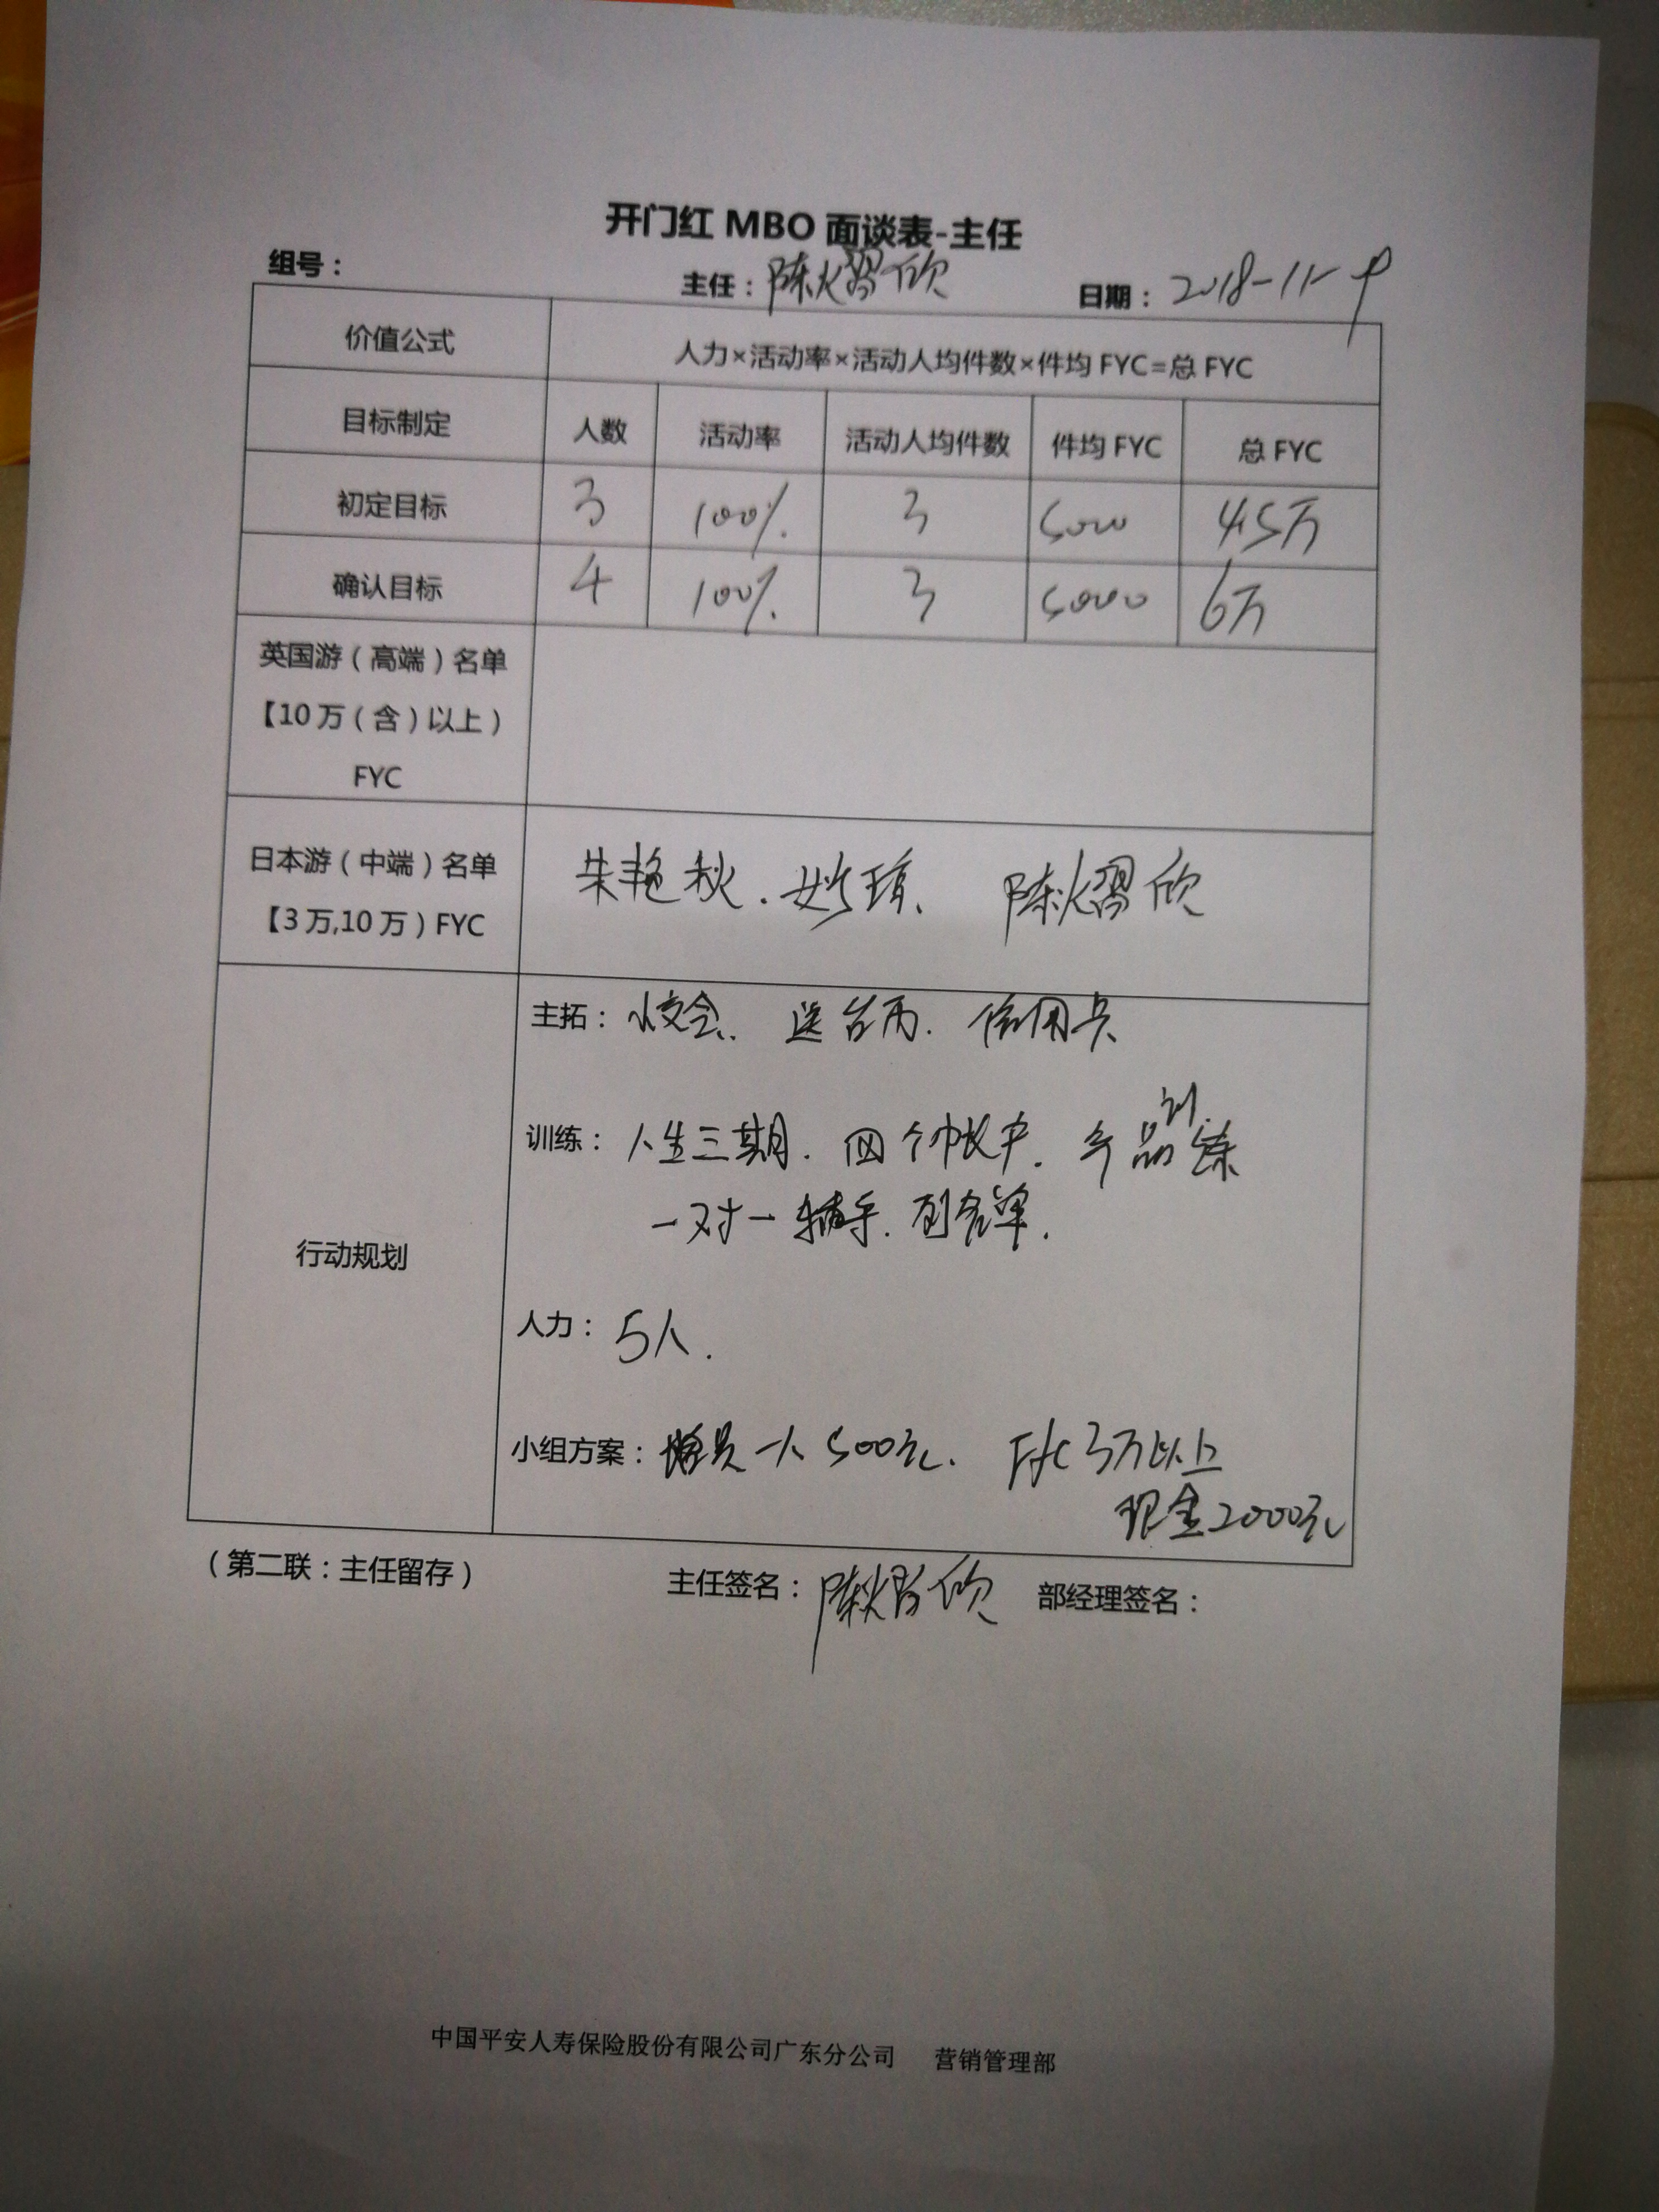 开门红 MBO 面谈表-主任
组号： 主任：陈熠欣 日期：2018-11-9
价值公式 人力×活动率×活动人均件数×件均 FYC=总 FYC
目标制定 人数 活动率 活动人均件数 件均 FYC 总 FYC
初定目标 3 100% 3 5000 4.5万
确认目标 4 100% 3 5000 6万
英国游（高端）名单
【10 万（含）以上）
FYC
日本游（中端）名单
【3 万,10 万）FYC
朱艳秋. 妙 陈熠欣
行动规划
主拓： 送台历. 信用卡
训练：人生三期. 四个帐户. 产品训练
一对一 列名单.
人力：5人.
小组方案：增员一人500元. FYC 3万以上
现金2000元
（第二联：主任留存） 主任签名：陈熠欣 部经理签名：
中国平安人寿保险股份有限公司广东分公司 营销管理部